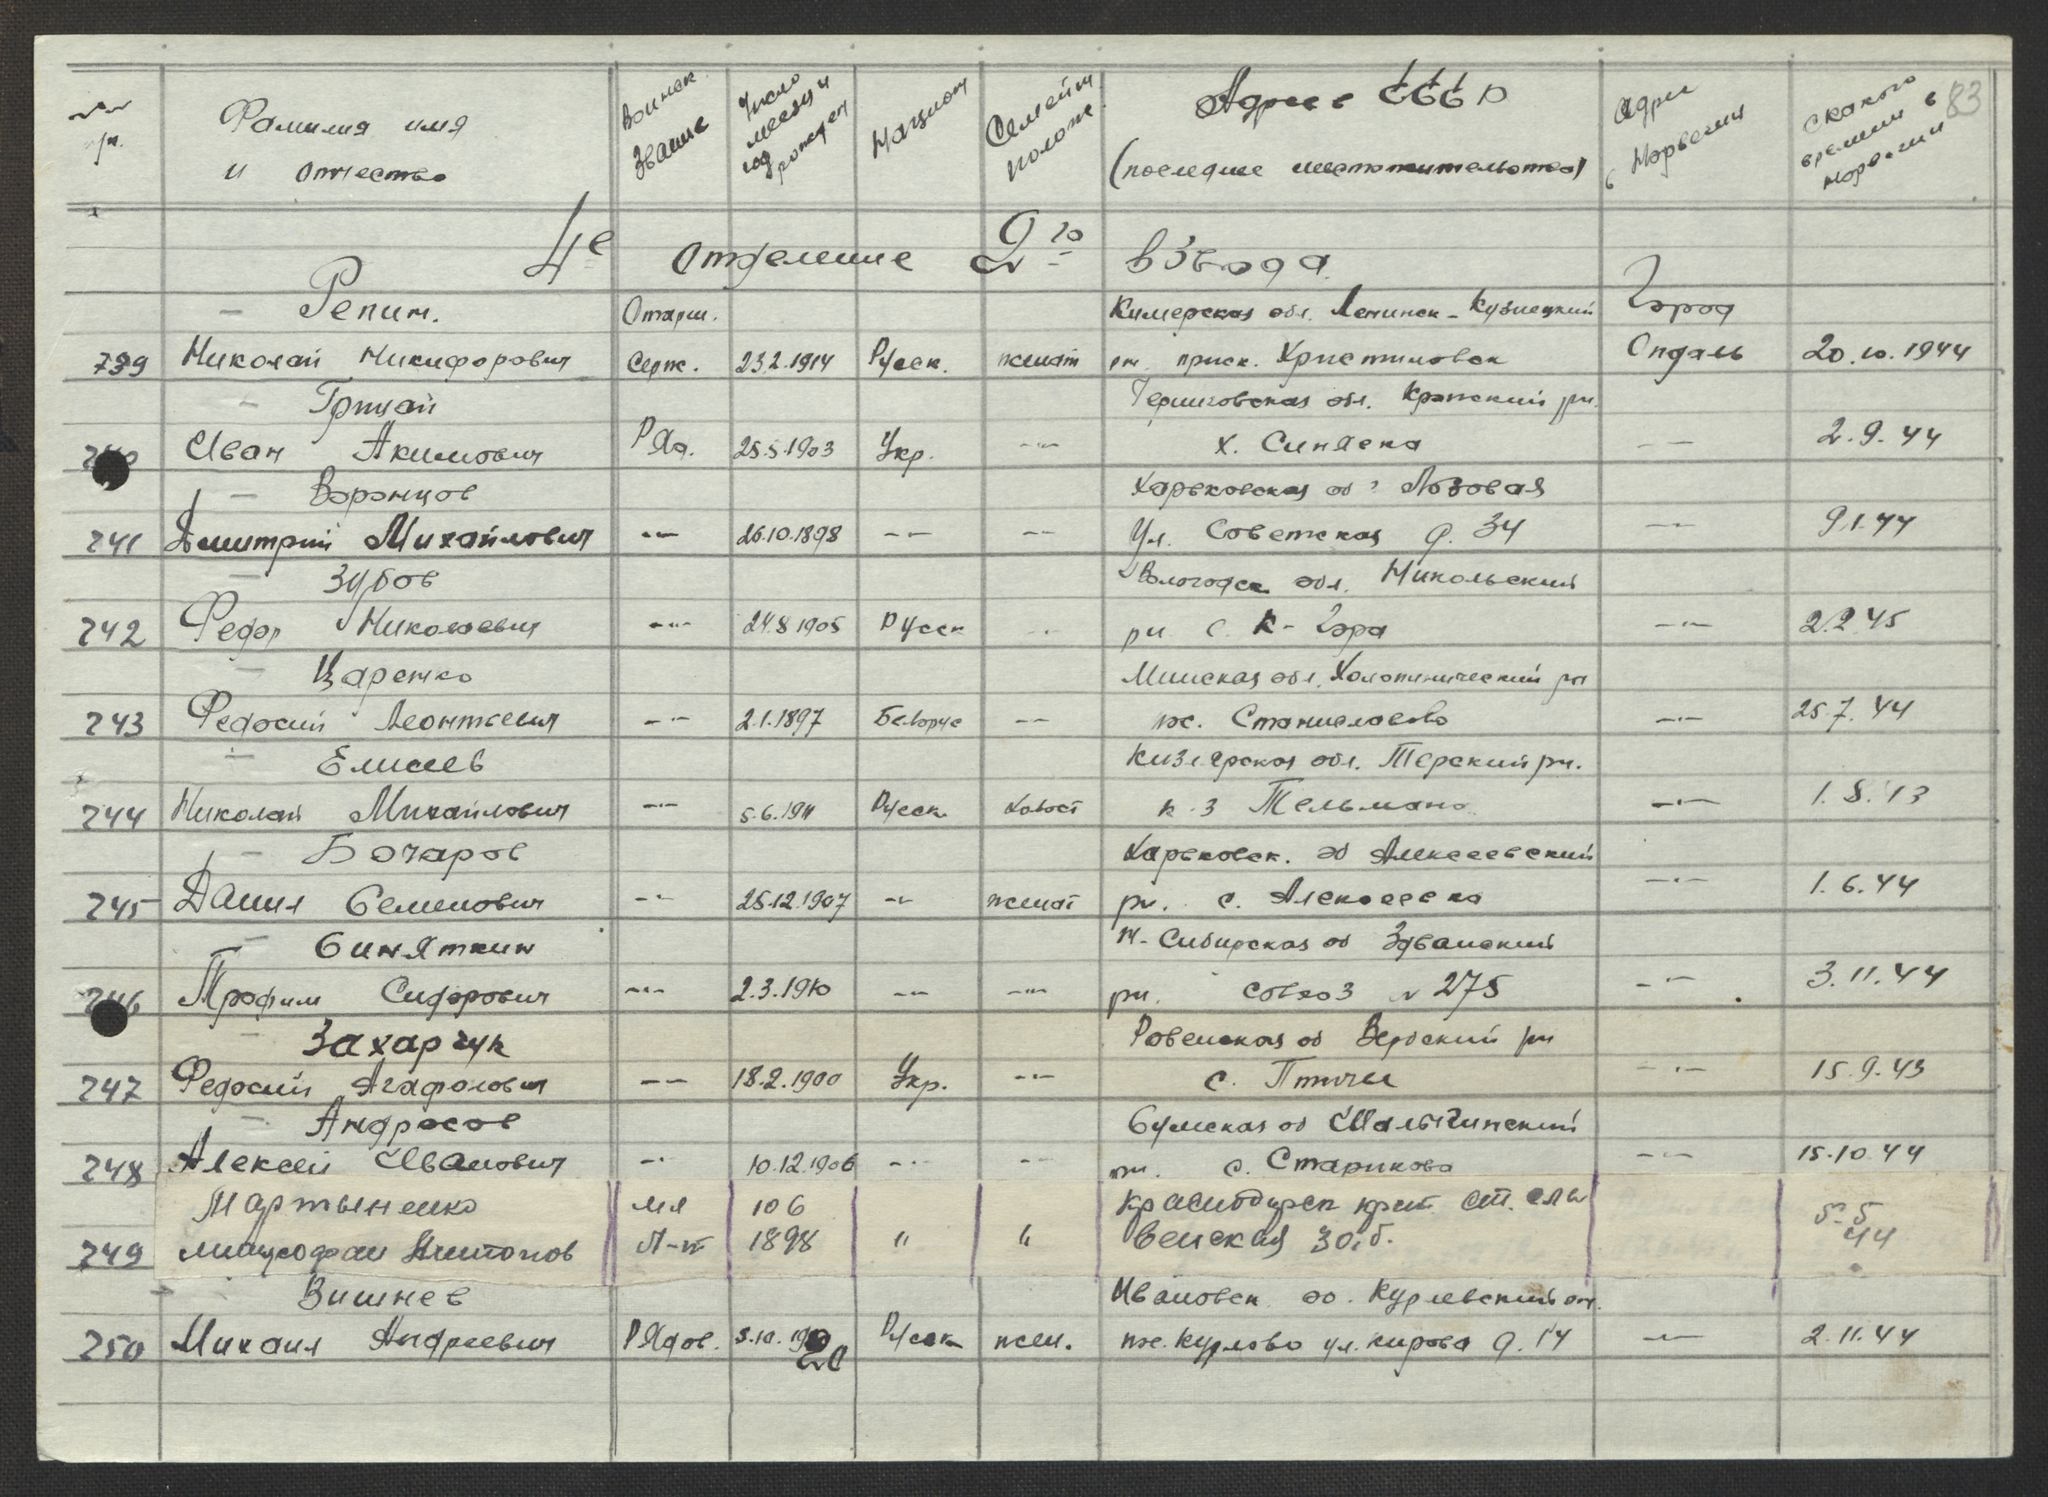 83
Фамилия имя и отчество | Воинск. Звание | Число месяц и год рожден | Национ | Семейн полож. | Адрес в СССР (последнее местожительство) | Адрес в Норвегии | С какого времени в Норвегии
4е отделение 2го взвода.
Репин. | Старш. | Кемерская обл. Ленинск-Кузнецкий | Город
739 Николай Никифорович | Серж. | 23.2.1914 | Русск. | женат | рн. приск. Христиновск | Опдаль | 20.10.1944
Грицай | Черниговская обл. рн.
240 Иван Акимович | Ряд. | 25.5.1903 | Укр. | -"- | х. Синявка | -"- | 2.9.44
Воронцов | Харьковская об Лозовая
241 Дмитрий Михайлович | -"- | 26.10.1898 | -"- | -"- | Ул. Советская д. 34 | -"- | 9.1.44
Зубов | Вологодск обл. Никольский
242 Федор Николаевич | -"- | 24.8.1905 | Русск | -"- | рн с. К-Гора | -"- | 2.2.45
Царенко | Минская обл. Холопинический рн
243 Федосий Леонтьевич | -"- | 2.1.1897 | Беларус | -"- | с. Станиславово | -"- | 25.7.44
Елисеев | Кизлярская обл. Терский рн.
244 Николай Михайлович | -"- | 5.6.1911 | Русск | холост | к-з Тельмано | -"- | 1.8.43
Бочаров | Харьковск. об Алексеевский
245 Данил Семенович | -"- | 25.12.1907 | -"- | женат | рн. с. Алексеевка | -"- | 1.6.44
Синяткин | Н-Сибирская об Здванский
246 Трофим Сидорович | -"- | 2.3.1910 | -"- | -"- | рн. совхоз № 275 | -"- | 3.11.44
Захарчук | Ровенская об Вербский рн
247 Федосий Агафонович | -"- | 18.2.1900 | Укр. | -"- | с. Птичье | -"- | 15.9.43
Андросов | Сумская об Шалыгинский
248 Алексей Иванович | -"- | 10.12.1906 | -"- | -"- | рн. с. Стариково | -"- | 15.10.44
Мартыненко | мл | 106 | Краснодарск край. ст. сла | 5-5
249 Антонов | Л-т | 1898 | " | " | венская 30.б. | 44
Вишнев | Ивановск об. Курлевский рн.
250 Михаил Андреевич | Рядов. | 5.10.19 20 | Русск | жен. | пос. Курлово ул. Кирова д. 14 | -"- | 2.11.44